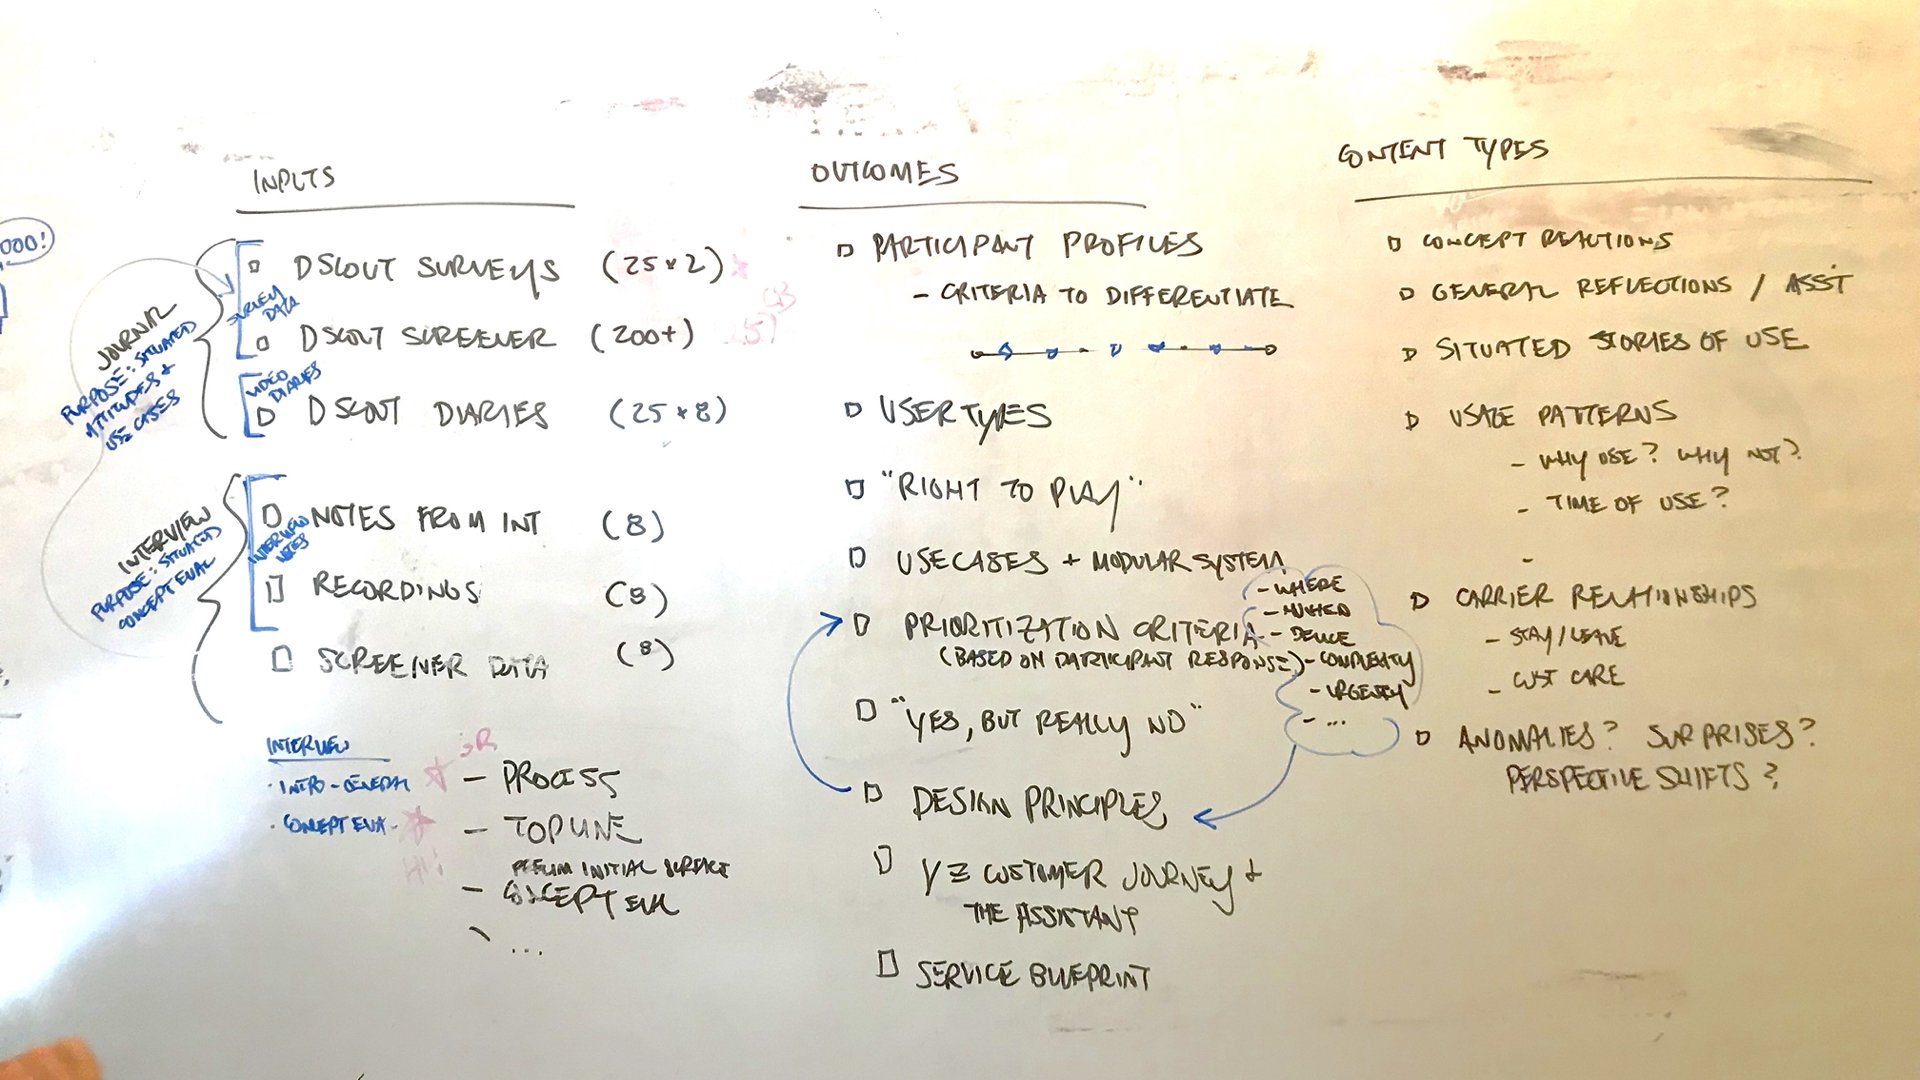 INPUTS
000!
JOURNAL
PURPOSE: SITUATED
ATTITUDES +
USE CASES
SURVEY
DATA
□ DSCOUT SURVEYS (25 × 2)
□ DSCOUT SCREENER (200+)
VIDEO
DIARIES
□ DSCOUT DIARIES (25 × 8)
INTERVIEW
PURPOSE: SITUATED
CONCEPT EVAL
□ NOTES FROM INT (8)
INTERVIEW
NOTES
□ RECORDINGS (8)
□ SCREENER DATA (8)
INTERVIEW
· INTRO - GENERAL
· CONCEPT EVA.
- PROCESS
- TOPLINE
PRELIM INITIAL SURFACE
- CONCEPT EVAL
- ...
OUTCOMES
□ PARTICIPANT PROFILES
- CRITERIA TO DIFFERENTIATE
□ USER TYPES
□ "RIGHT TO PLAY"
□ USE CASES + MODULAR SYSTEM
□ PRIORITIZATION CRITERIA
(BASED ON PARTICIPANT RESPONSE)
- WHERE
- DEVICE
- COMPLEXITY
- URGENCY
- ...
□ "YES, BUT REALLY NO"
□ DESIGN PRINCIPLES
□ CUSTOMER JOURNEY +
THE ASSISTANT
□ SERVICE BLUEPRINT
CONTENT TYPES
□ CONCEPT REACTIONS
□ GENERAL REFLECTIONS / ASST
□ SITUATED STORIES OF USE
□ USAGE PATTERNS
- WHY USE? WHY NOT?
- TIME OF USE?
-
□ CARRIER RELATIONSHIPS
- STAY/LEAVE
- CUST CARE
□ ANOMALIES? SURPRISES?
PERSPECTIVE SHIFTS?